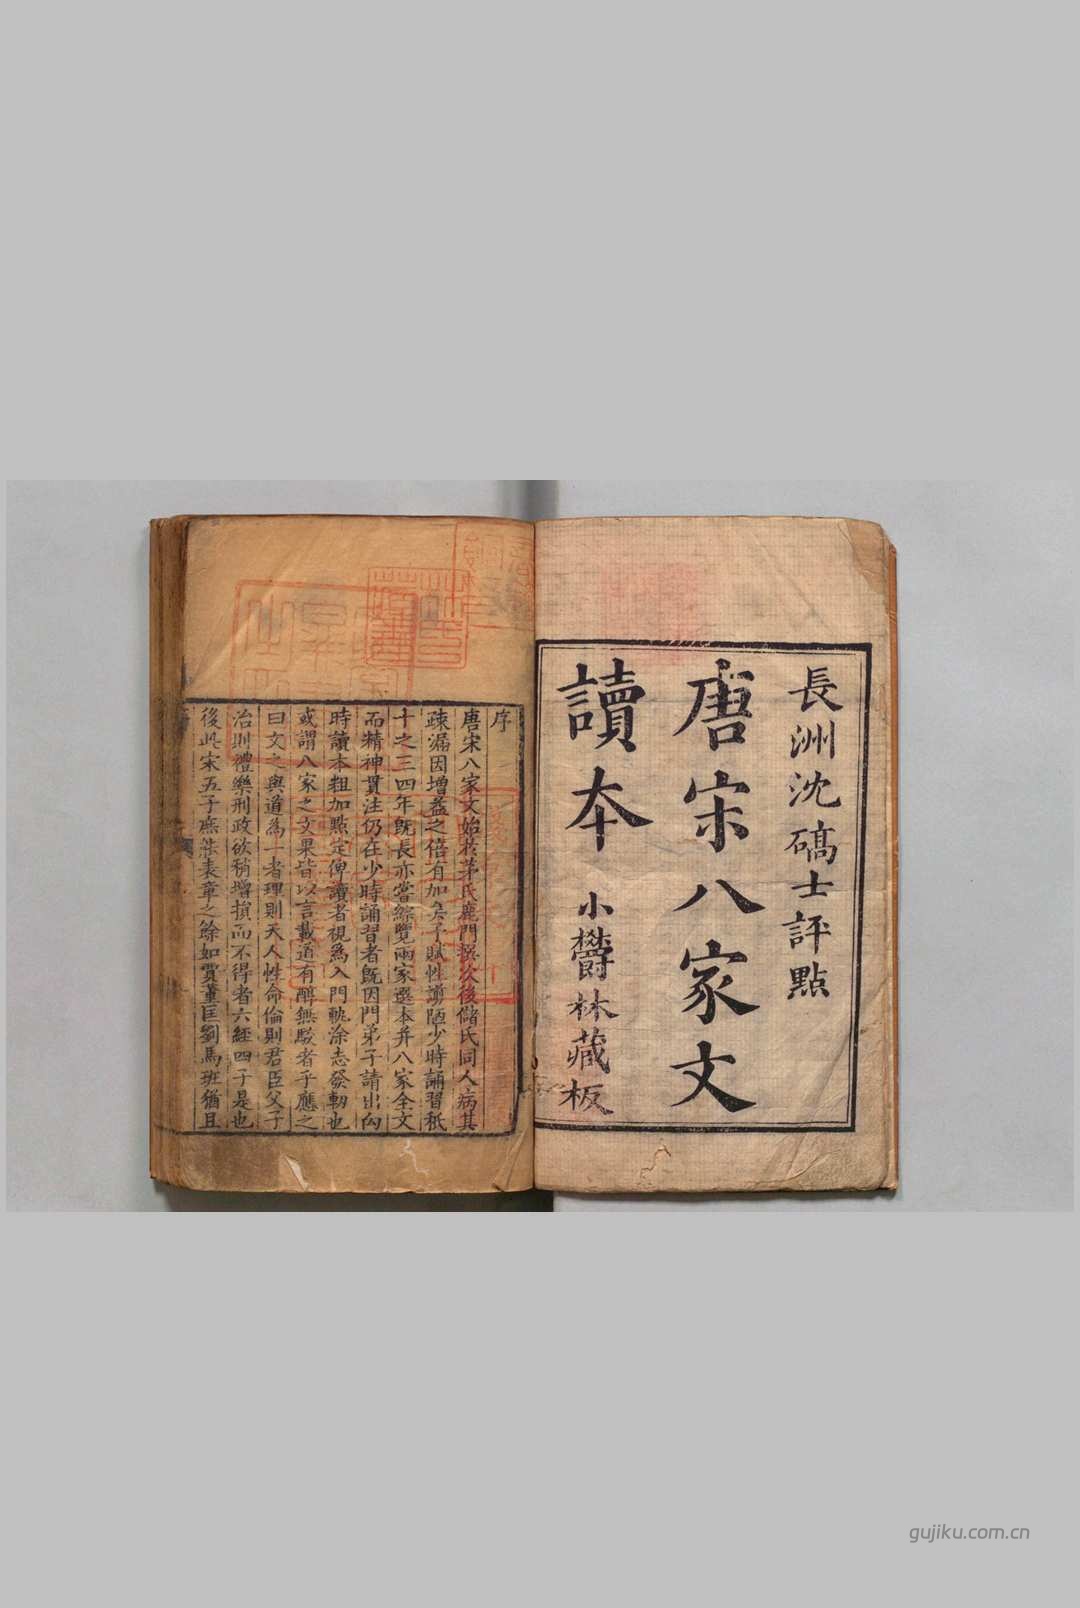 長洲沈碻士評點
唐宋八家文
讀本
小欝林藏板
序
唐宋八家文始於茅氏鹿門撰次後儲氏同人病其
疎漏因增益之倍有加矣予賦性謭陋少時誦習秖
十之三四年旣長亦嘗綜覽兩家選本并八家全文
而精神貫注仍在少時誦習者旣因門弟子請出向
時讀本粗加點定俾讀者視爲入門軌涂志發軔也
或謂八家之文果皆以言載道有醇無駁者乎應之
曰文之與道爲一者理則天人性命倫則君臣父子
治則禮樂刑政欲稍增損而不得者六經四子是也
後此宋五子庶能表章之餘如賈董匡劉馬班猶且
gujiku.com.cn